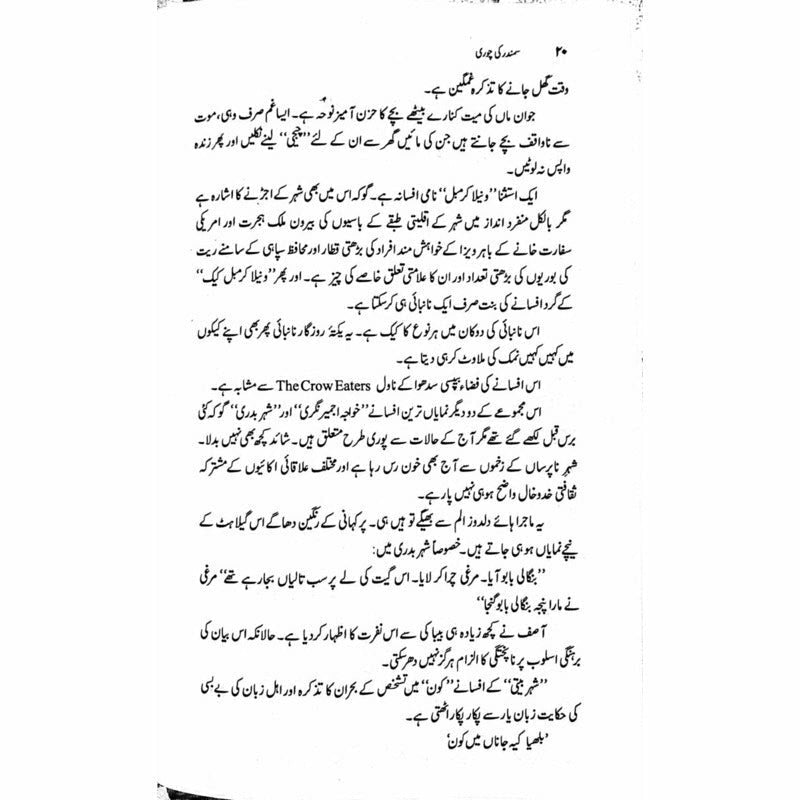 ۲۰ سمندر کی چوری
وقت گھل جانے کا تذکرہ غمگین ہے۔
جوان ماں کی میت کنارے بیٹھے بچے کا حزن آمیز نوحہ ہے۔ ایسا غم صرف وہی، موت
سے ناواقف بچے جانتے ہیں جن کی مائیں گھر سے ان کے لئے ’’چیجی‘‘ لینے نکلیں اور پھر زندہ
واپس نہ لوٹیں۔
ایک استثنا ’’ونیلا کرمبل‘‘ نامی افسانہ ہے۔ گو کہ اس میں بھی شہر کے اجڑنے کا اشارہ ہے
مگر بالکل منفرد انداز میں شہر کے اقلیتی طبقے کے باسیوں کی بیرون ملک ہجرت اور امریکی
سفارت خانے کے باہر ویزا کے خواہش مند افراد کی بڑھتی قطار اور محافظ سپاہی کے سامنے ریت
کی بوریوں کی بڑھتی تعداد اور ان کا علامتی تعلق خاصے کی چیز ہے۔ اور پھر ’’ونیلا کرمبل کیک‘‘
کے گرد افسانے کی بنت صرف ایک نانبائی ہی کر سکتا ہے۔
اس نانبائی کی دوکان میں ہر نوع کا کیک ہے۔ یہ یکتۂ روزگار نانبائی پھر بھی اپنے کیکوں
میں کہیں کہیں نمک کی ملاوٹ کر ہی دیتا ہے۔
اس افسانے کی فضاء بیپسی سدھوا کے ناول The Crow Eaters سے مشابہ ہے۔
اس مجموعے کے دو دیگر نمایاں ترین افسانے ’’خواجہ اجمیر نگری‘‘ اور ’’شہر بدری‘‘ گو کہ کئی
برس قبل لکھے گئے تھے مگر آج کے حالات سے پوری طرح متعلق ہیں۔ شائد کچھ بھی نہیں بدلا۔
شہرِ ناپرساں کے زخموں سے آج بھی خون رس رہا ہے اور مختلف علاقائی اکائیوں کے مشترکہ
ثقافتی خدوخال واضح ہو ہی نہیں پا رہے۔
یہ ماجرا ہائے دلدوز الم سے بھیگے تو ہیں ہی۔ پر کہانی کے رنگین دھاگے اس گیلاہٹ کے
نیچے نمایاں ہو ہی جاتے ہیں۔ خصوصاً شہر بدری میں:
’’بنگالی بابو آیا۔ مرغی چرا کر لایا۔ اس گیت کی لے پر سب تالیاں بجا رہے تھے‘‘ مرغی
نے مارا پنجہ بنگالی بابو گنجا‘‘
آصف نے کچھ زیادہ ہی بیباکی سے اس نفرت کا اظہار کر دیا ہے۔ حالانکہ اس بیان کی
برہنگی اسلوب پر ناپختگی کا الزام ہرگز نہیں دھر سکتی۔
’’شہر بیتی‘‘ کے افسانے ’’کون‘‘ میں تشخص کے بحران کا تذکرہ اور اہل زبان کی بے بسی
کی حکایت زبان یار سے پکار پکار اٹھتی ہے۔
’بلھیا کیہ جاناں میں کون‘